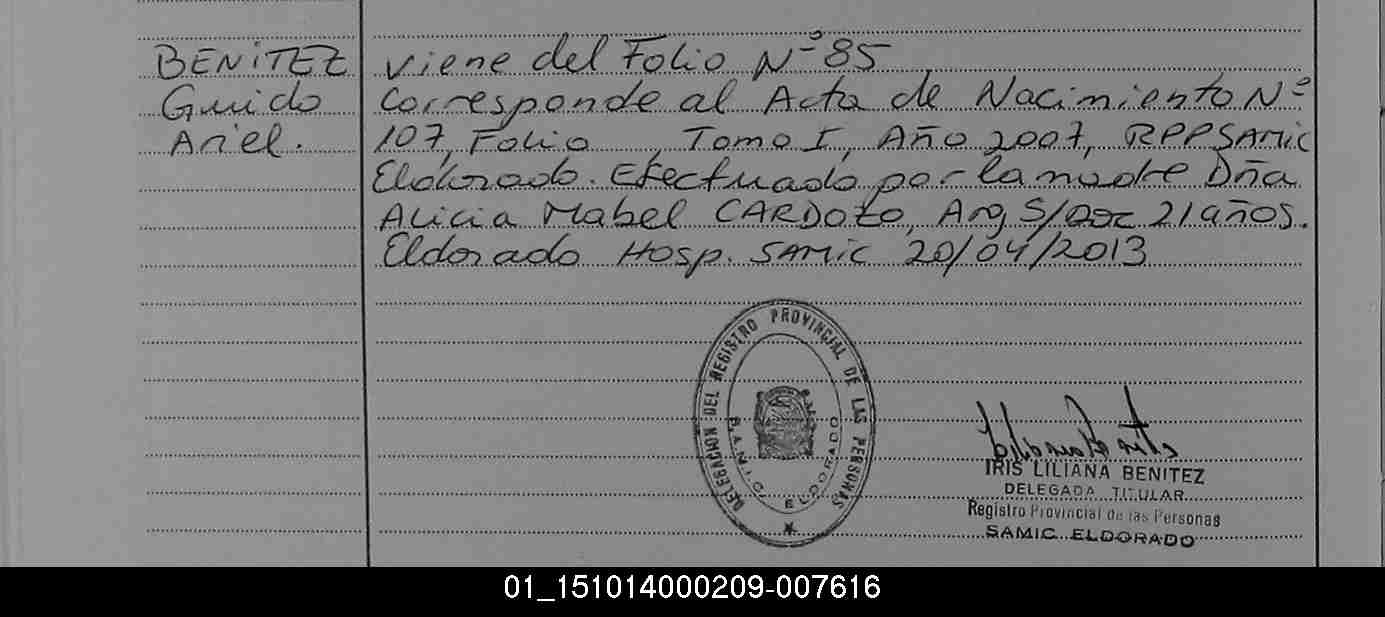 BENITEZ
Guido
Ariel.
Viene del Folio Nº 85
Corresponde al Acta de Nacimiento Nº
107, Folio , Tomo I, Año 2007, RPPSAMIC
Eldorado. Efectuado por la madre Dña
Alicia Mabel CARDOZO, Arg, S/Doc 21 años.
Eldorado Hosp. SAMIC 20/04/2013
DELEGACION DEL REGISTRO PROVINCIAL DE LAS PERSONAS
S.A.M.I.C. ELDORADO
IRIS LILIANA BENITEZ
DELEGADA TITULAR
Registro Provincial de las Personas
SAMIC ELDORADO
01_151014000209-007616